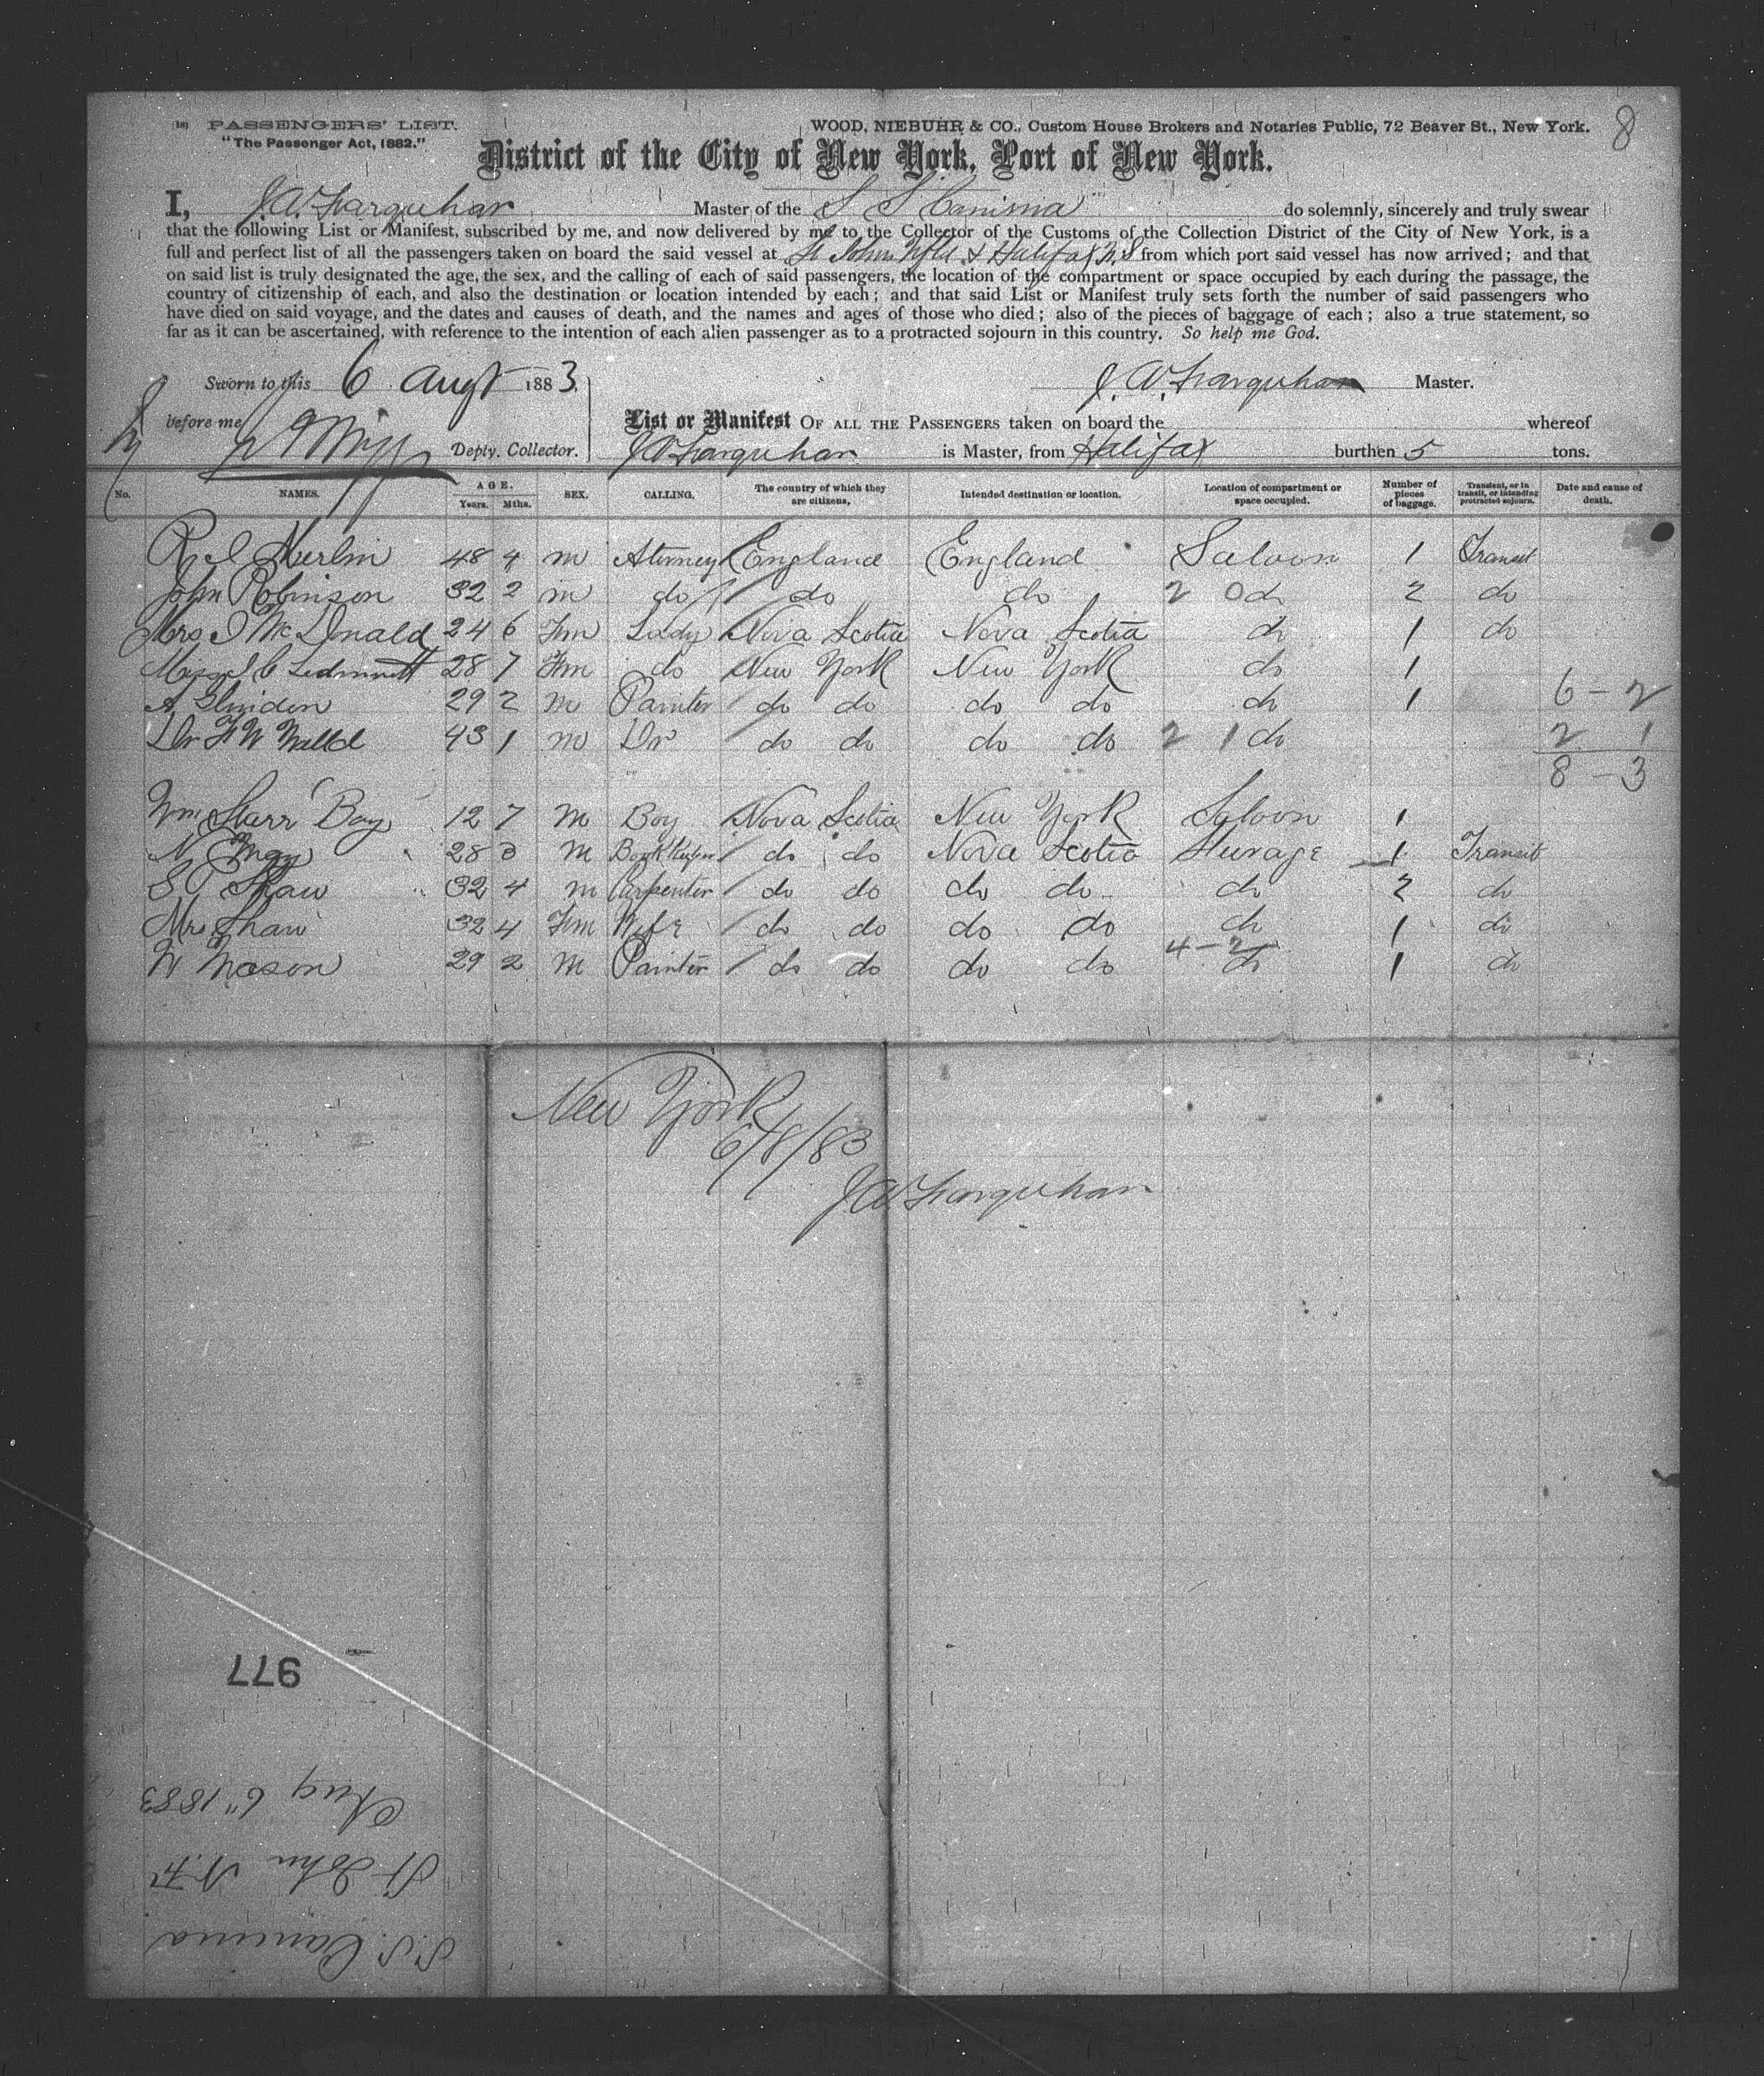 (18) PASSENGERS' LIST.
"The Passenger Act, 1882."
WOOD, NIEBUHR & CO., Custom House Brokers and Notaries Public, 72 Beaver St., New York.
8
District of the City of New York, Port of New York.
I, J.A. Farquhar Master of the S S Canima do solemnly, sincerely and truly swear
that the following List or Manifest, subscribed by me, and now delivered by me to the Collector of the Customs of the Collection District of the City of New York, is a
full and perfect list of all the passengers taken on board the said vessel at St John Nfld & Halifax N.S from which port said vessel has now arrived; and that
on said list is truly designated the age, the sex, and the calling of each of said passengers, the location of the compartment or space occupied by each during the passage, the
country of citizenship of each, and also the destination or location intended by each; and that said List or Manifest truly sets forth the number of said passengers who
have died on said voyage, and the dates and causes of death, and the names and ages of those who died; also of the pieces of baggage of each; also a true statement, so
far as it can be ascertained, with reference to the intention of each alien passenger as to a protracted sojourn in this country. So help me God.
Sworn to this 6 Augt 1883
J.A. Farquhar Master.
before me Deply. Collector.
List or Manifest OF ALL THE PASSENGERS taken on board the whereof
J A Farquhar is Master, from Halifax burthen 5 tons.
No. NAMES. AGE. Years. Mths. SEX. CALLING. The country of which they are citizens, Intended destination or location. Location of compartment or space occupied. Number of pieces of baggage. Transient, or in transit, or intending protracted sojourn. Date and cause of death.
R I Merlin 48 4 m Atorney England England Saloon 1 Transit
John Robinson 32 2 m do do do 2 0 do 2 do
Mrs I McDonald 24 6 Fem Lady Nova Scotia Nova Scotia do 1 do
Miss 28 7 Fem do New York New York do 1
A 29 2 m Painter do do do do do 1 6 - 2
Dr F W 43 1 m Dr do do do do 2 1 do 2 1
8 - 3
Wm Starr Boy 12 7 m Boy Nova Scotia New York Saloon 1
N 28 3 m Book Keeper do do Nova Scotia Sturage 1 Transit
S P Shaw 32 4 m Carpenter do do do do do 2 do
Mrs Shaw 32 4 Fem Wife do do do do do 1 do
4 - 2
W Mason 29 2 m Painter do do do do do 1 do
New York
6/8/83
J A Farquhar
977
Aug 6" 1883
St John N.F.
S.S. Canima